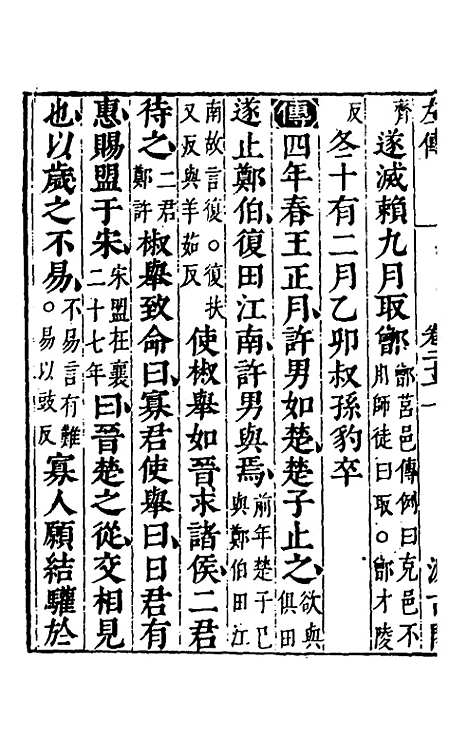 左傳 卷二十一
齊遂滅賴九月取鄫鄫莒邑傳例曰克邑不用師徒曰取○鄫才陵
反冬十有二月乙卯叔孫豹卒
傳四年春王正月許男如楚楚子止之欲與俱田
遂止鄭伯復田江南許男與焉前年楚子已與鄭伯田江
南故言復○復扶又反與羊茹反使椒舉如晉求諸侯二君
待之二君鄭許椒舉致命曰寡君使舉曰日君有
惠賜盟于宋宋盟在襄二十七年曰晉楚之從交相見
也以歲之不易不易言有難○易以豉反寡人願結驩於